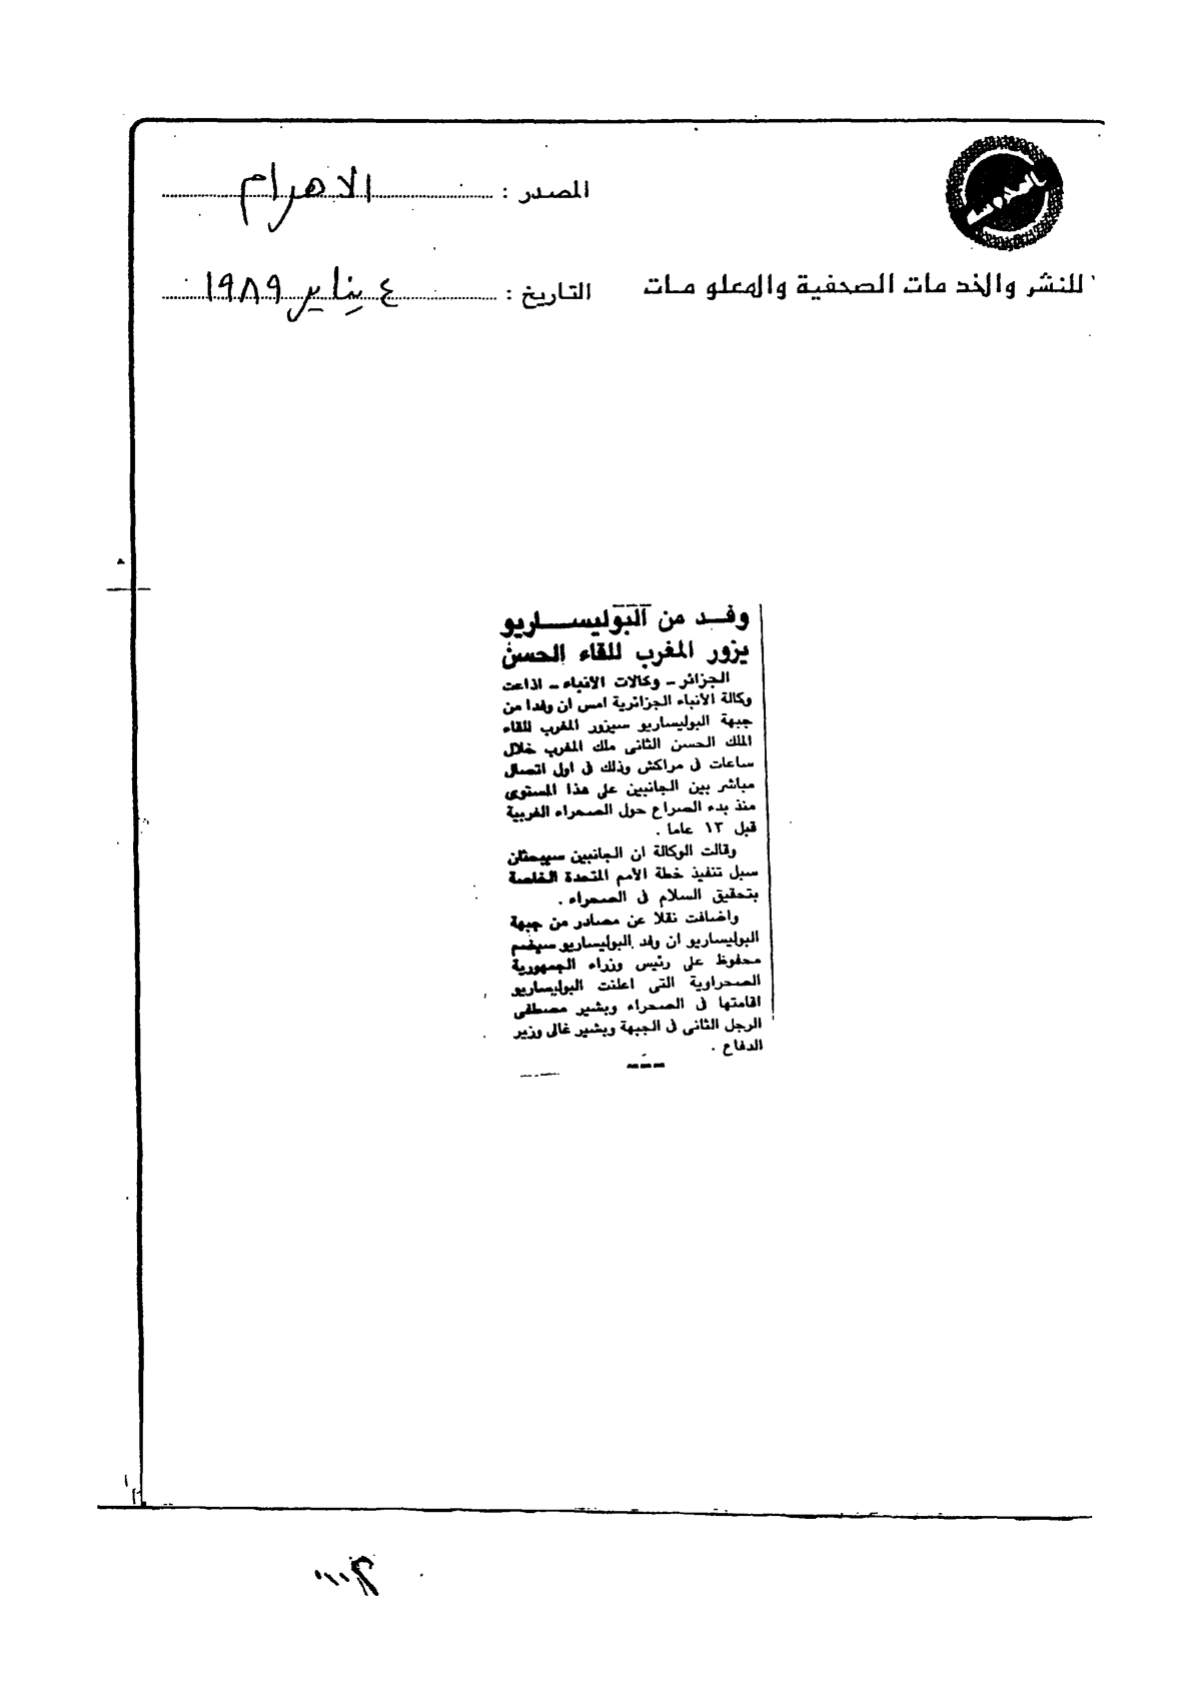 المصدر : الاهرام
للنشر والخدمات الصحفية والمعلومات
التاريخ : ٤ يناير ١٩٨٩
وفد من البوليساريو
يزور المغرب للقاء الحسن
الجزائر ـ وكالات الأنباء ـ اذاعت
وكالة الأنباء الجزائرية امس ان وفدا من
جبهة البوليساريو سيزور المغرب للقاء
الملك الحسن الثانى ملك المغرب خلال
ساعات فى مراكش وذلك فى اول اتصال
مباشر بين الجانبين على هذا المستوى
منذ بدء الصراع حول الصحراء الغربية
قبل ١٣ عاما .
وقالت الوكالة ان الجانبين سيبحثان
سبل تنفيذ خطة الأمم المتحدة الخاصة
بتحقيق السلام فى الصحراء .
واضافت نقلا عن مصادر من جبهة
البوليساريو ان وفد البوليساريو سيضم
محفوظ على رئيس وزراء الجمهورية
الصحراوية التى اعلنت البوليساريو
اقامتها فى الصحراء وبشير مصطفى
الرجل الثانى فى الجبهة وبشير غالى وزير
الدفاع .